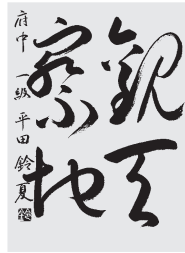 觀天
察地
府中 一級 平田 鈴夏